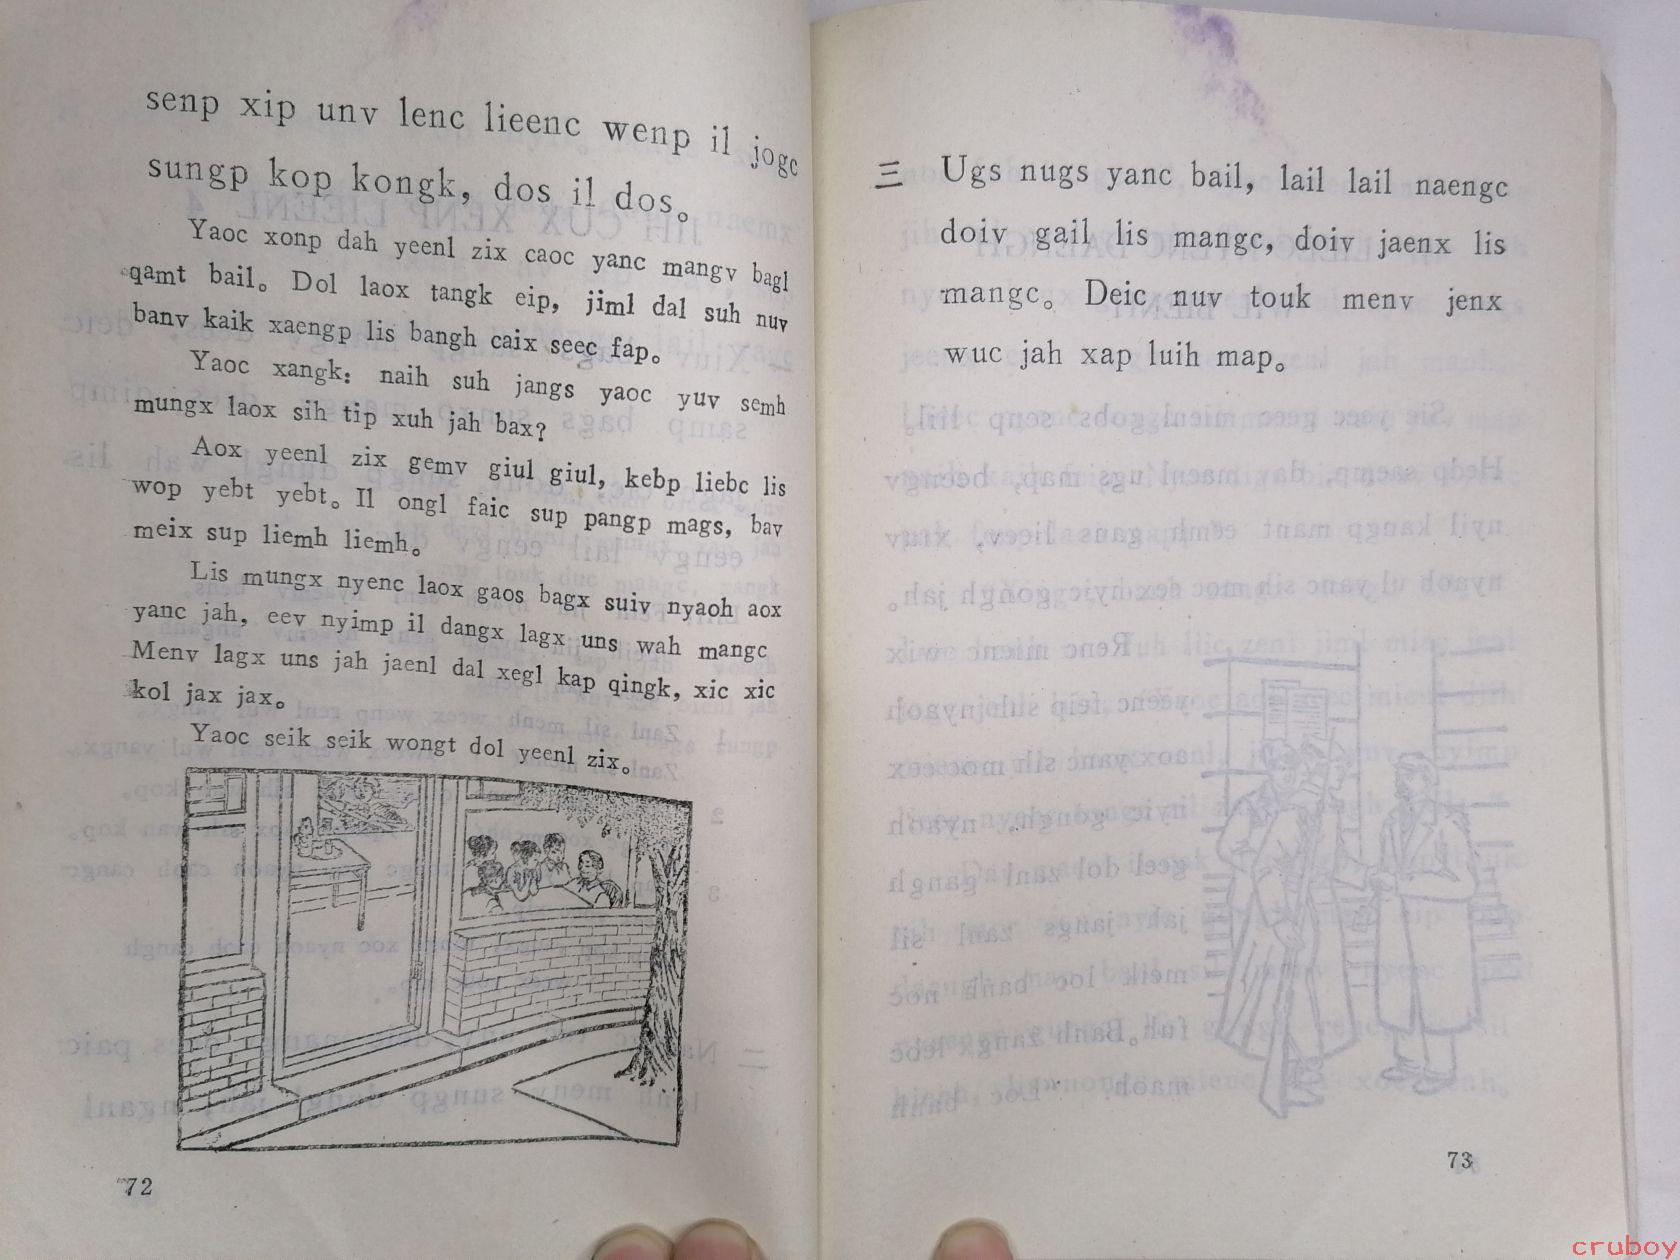 senp xip unv lenc lieenc wenp il jogc
sungp kop kongk, dos il dos。
Yaoc xonp dah yeenl zix caoc yanc mangv bagl
qamt bail。 Dol laox tangk eip, jiml dal suh nuv
banv kaik xaengp lis bangh caix seec fap。
Yaoc xangk: naih suh jangs yaoc yuv semh
mungx laox sih tip xuh jah bax?
Aox yeenl zix gemv giul giul, kebp liebc lis
wop yebt yebt。 Il ongl faic sup pangp mags, bav
meix sup liemh liemh。
Lis mungx nyenc laox gaos bagx suiv nyaoh aox
yanc jah, eev nyimp il dangx lagx uns wah mangc
Menv lagx uns jah jaenl dal xegl kap qingk, xic xic
kol jax jax。
Yaoc seik seik wongt dol yeenl zix。
72
三 Ugs nugs yanc bail, lail lail naengc
doiv gail lis mangc, doiv jaenx lis
mangc。 Deic nuv touk menv jenx
wuc jah xap luih map。
73
cruboy